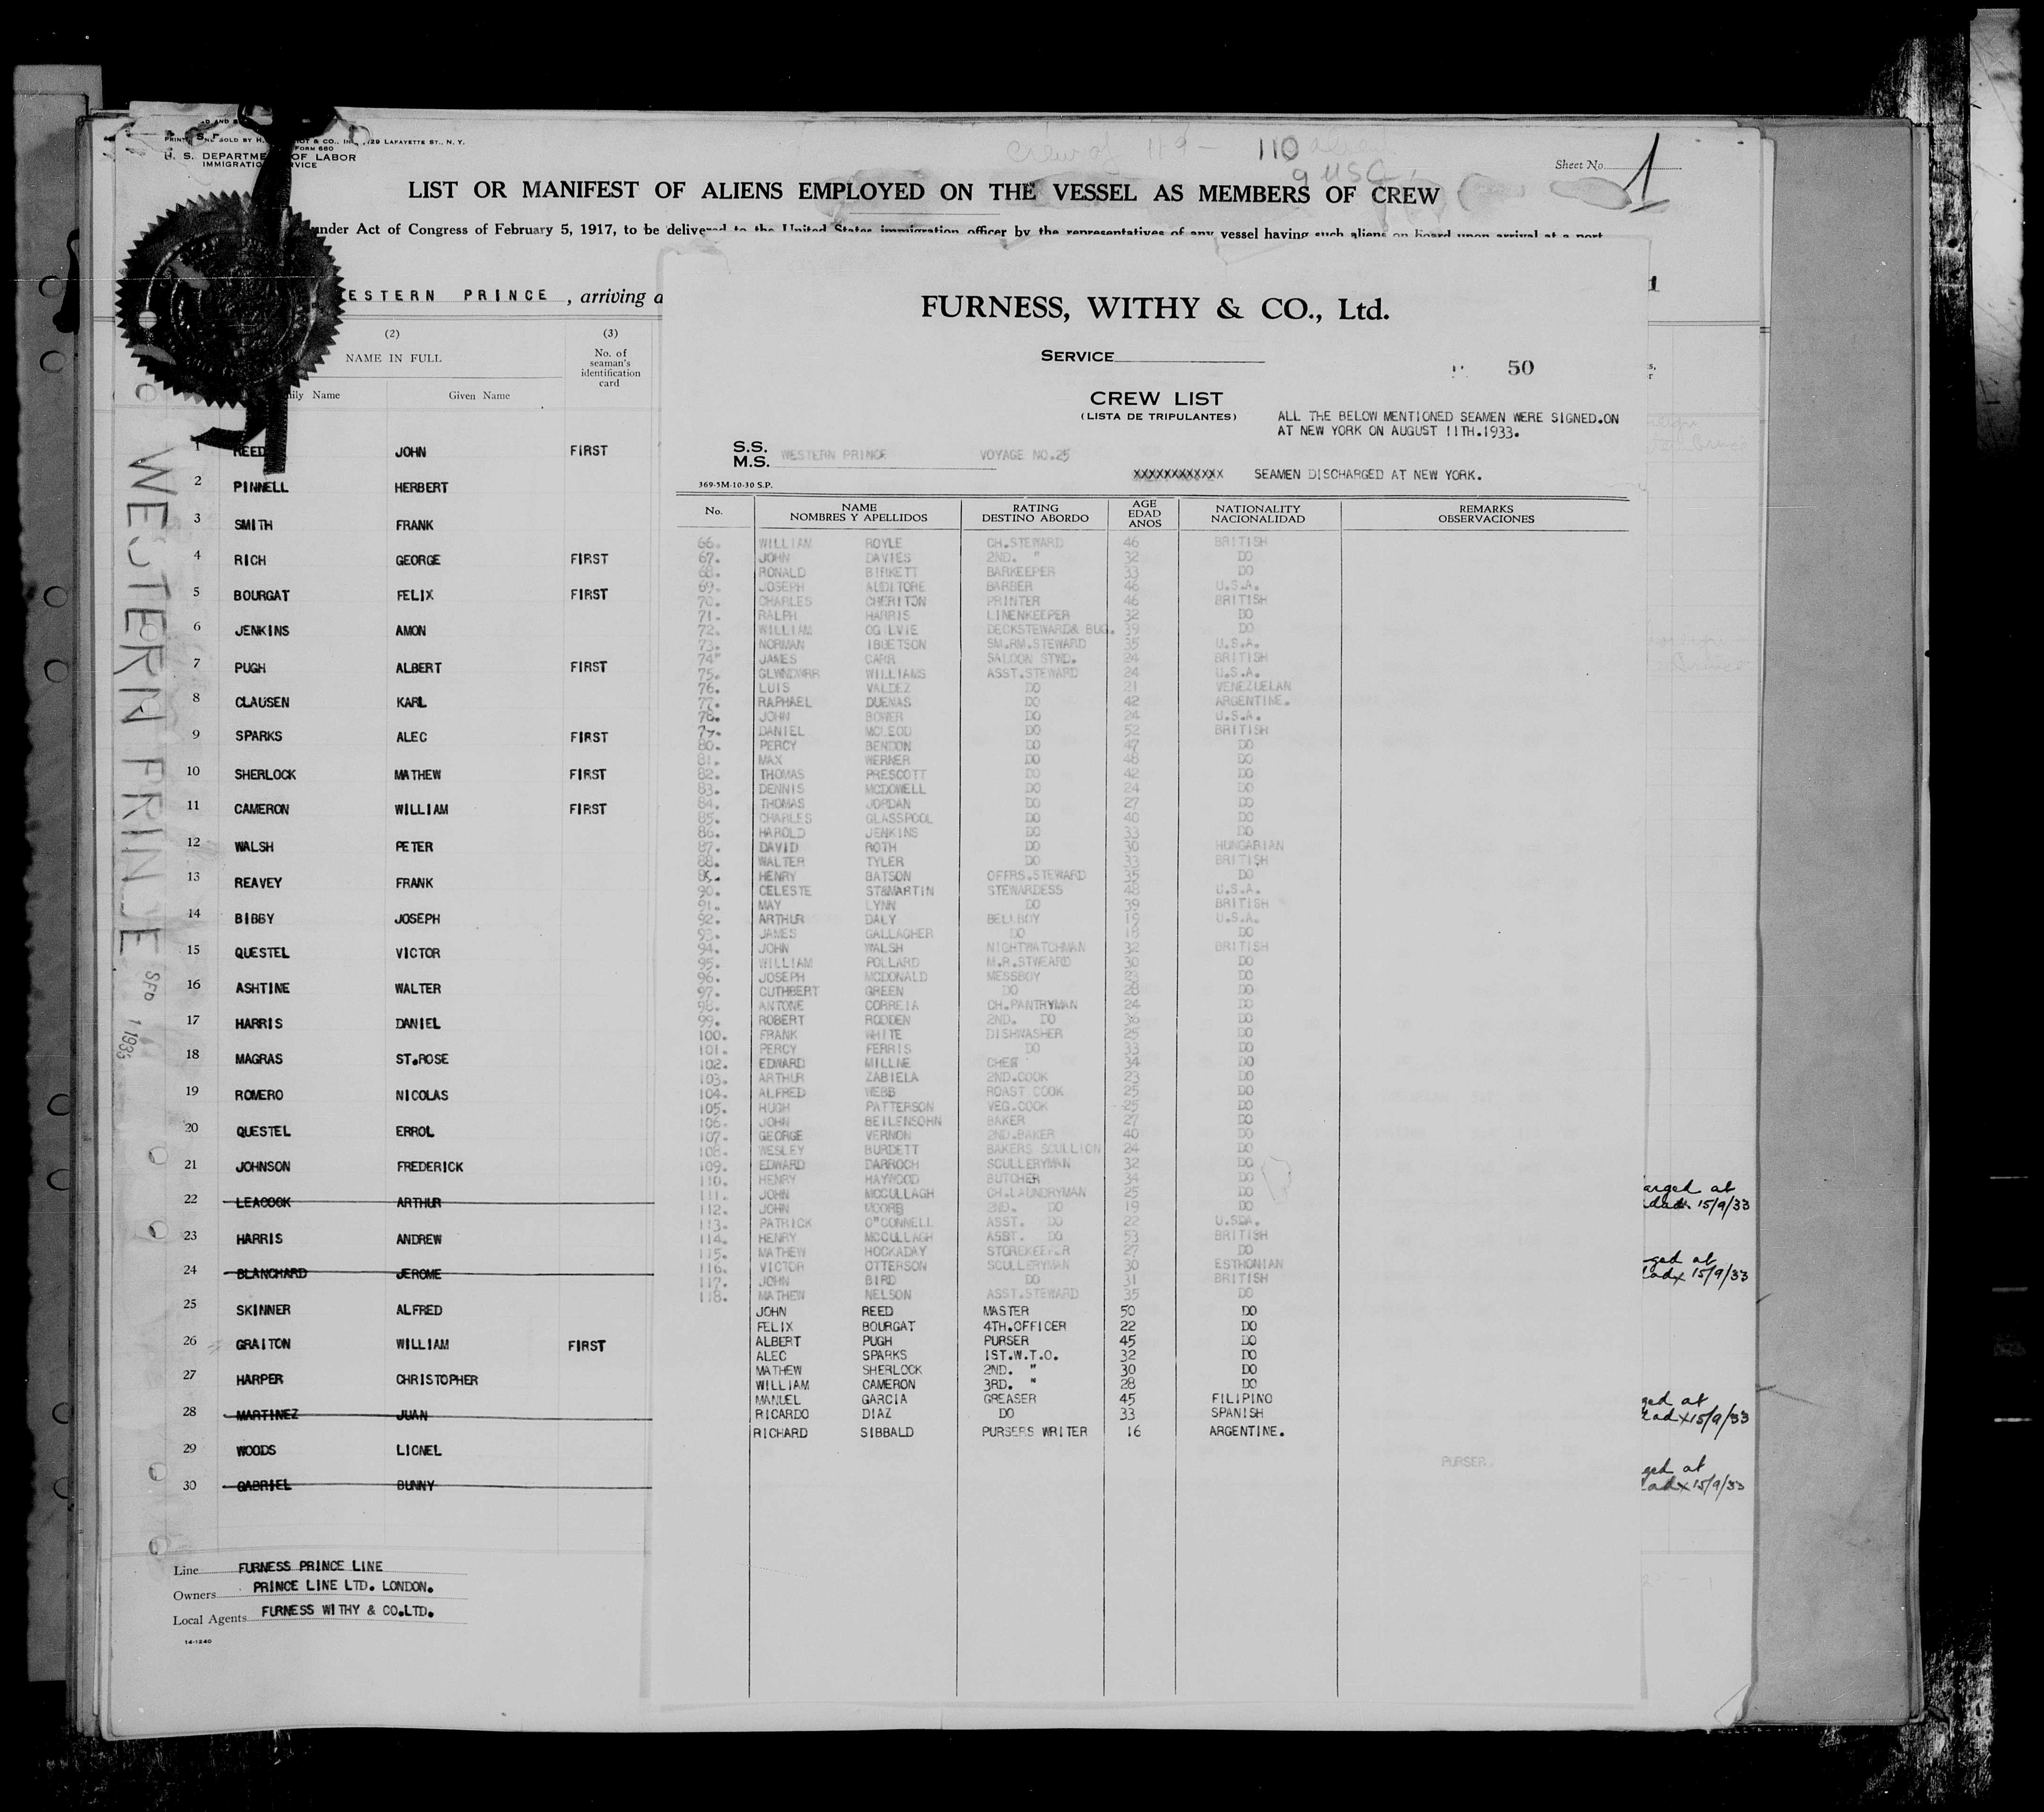 U. S. DEPARTMENT OF LABOR
IMMIGRATION SERVICE
FORM 680
29 LAFAYETTE ST., N. Y.
Crew of 119 - 110 aliens
9 USC
Sheet No. 1
LIST OR MANIFEST OF ALIENS EMPLOYED ON THE VESSEL AS MEMBERS OF CREW
under Act of Congress of February 5, 1917, to be delivered to the United States immigration officer by the representatives of any vessel having such aliens on board upon arrival at a port
ESTERN PRINCE , arriving a
(2) (3)
NAME IN FULL
No. of seaman's identification card
ily Name Given Name
1 REED JOHN FIRST
2 PINNELL HERBERT
3 SMITH FRANK
4 RICH GEORGE FIRST
5 BOURGAT FELIX FIRST
6 JENKINS AMON
7 PUGH ALBERT FIRST
8 CLAUSEN KARL
9 SPARKS ALEC FIRST
10 SHERLOCK MATHEW FIRST
11 CAMERON WILLIAM FIRST
12 WALSH PETER
13 REAVEY FRANK
14 BIBBY JOSEPH
15 QUESTEL VICTOR
16 ASHTINE WALTER
17 HARRIS DANIEL
18 MAGRAS ST.ROSE
19 ROMERO NICOLAS
20 QUESTEL ERROL
21 JOHNSON FREDERICK
22 LEACOCK ARTHUR
23 HARRIS ANDREW
24 BLANCHARD JEROME
25 SKINNER ALFRED
26 GRAITON WILLIAM FIRST
27 HARPER CHRISTOPHER
28 MARTINEZ JUAN
29 WOODS LIONEL
30 GABRIEL BUNNY
Line FURNESS PRINCE LINE
Owners PRINCE LINE LTD. LONDON.
Local Agents FURNESS WITHY & CO.LTD.
14-1240
WESTERN PRINCE
1 1933
FURNESS, WITHY & CO., Ltd.
SERVICE
50
CREW LIST
(LISTA DE TRIPULANTES)
ALL THE BELOW MENTIONED SEAMEN WERE SIGNED.ON
AT NEW YORK ON AUGUST 11TH.1933.
S.S.
M.S. WESTERN PRINCE VOYAGE NO.25
XXXXXXXXXXXX SEAMEN DISCHARGED AT NEW YORK.
369-5M-10-30 S.P.
No. NAME RATING AGE NATIONALITY REMARKS
NOMBRES Y APELLIDOS DESTINO ABORDO EDAD ANOS NACIONALIDAD OBSERVACIONES
66. WILLIAM ROYLE CH.STEWARD 46 BRITISH
67. JOHN DAVIES 2ND. " 32 DO
68. RONALD BIRKETT BARKEEPER 33 DO
69. JOSEPH AUDITORE BARBER 46 U.S.A.
70. CHARLES CHERITON PRINTER 46 BRITISH
71. RALPH HARRIS LINENKEEPER 32 DO
72. WILLIAM OGILVIE DECKSTEWARD& BUG. 39 DO
73. NORMAN IBBETSON SM.RM.STEWARD 35 U.S.A.
74" JAMES CARR SALOON STWD. 24 BRITISH
75. GLWNDWRR WILLIAMS ASST.STEWARD 24 U.S.A.
76. LUIS VALDEZ DO 21 VENEZUELAN
77. RAPHAEL DUENAS DO 42 ARGENTINE.
78. JOHN BOWER DO 24 U.S.A.
79. DANIEL MCLEOD DO 52 BRITISH
80. PERCY BENDON DO 47 DO
81. MAX WERNER DO 48 DO
82. THOMAS PRESCOTT DO 42 DO
83. DENNIS MCDOWELL DO 24 DO
84. THOMAS JORDAN DO 27 DO
85. CHARLES GLASSPOOL DO 40 DO
86. HAROLD JENKINS DO 33 DO
87. DAVID ROTH DO 30 HUNGARIAN
88. WALTER TYLER DO 33 BRITISH
HENRY BATSON OFFRS.STEWARD 35 DO
90. CELESTE ST&MARTIN STEWARDESS 48 U.S.A.
91. MAY LYNN DO 39 BRITISH
92. ARTHUR DALY BELLBOY 19 U.S.A.
93. JAMES GALLAGHER DO 18 DO
94. JOHN WALSH NIGHTWATCHMAN 32 BRITISH
95. WILLIAM POLLARD M.R.STWEARD 30 DO
96. JOSEPH MCDONALD MESSBOY 23 DO
97. CUTHBERT GREEN DO 28 DO
98. ANTONE CORREIA CH.PANTRYMAN 24 DO
99. ROBERT RODDEN 2ND. DO 36 DO
100. FRANK WHITE DISHWASHER 25 DO
101. PERCY FERRIS DO 33 DO
102. EDWARD MILLNE CHEF 34 DO
103. ARTHUR ZABIELA 2ND.COOK 23 DO
104. ALFRED WEBB ROAST COOK 25 DO
105. HUGH PATTERSON VEG.COOK 25 DO
106. JOHN BEILENSOHN BAKER 27 DO
107. GEORGE VERNON 2ND.BAKER 40 DO
108. WESLEY BURDETT BAKERS SCULLION 24 DO
109. EDWARD DARROCH SCULLERYMAN 32 DO
110. HENRY HAYWOOD BUTCHER 34 DO
111. JOHN MCCULLAGH CH.LAUNDRYMAN 25 DO
112. JOHN MOORE 2ND. DO 19 DO
113. PATRICK O"CONNELL ASST. DO 22 U.SDA.
114. HENRY MCCULLAGH ASST. DO 53 BRITISH
115. MATHEW HOCKADAY STOREKEEPER 27 DO
116. VICTOR OTTERSON SCULLERYMAN 30 ESTHONIAN
117. JOHN BIRD DO 31 BRITISH
118. MATHEW NELSON ASST.STEWARD 35 DO
JOHN REED MASTER 50 DO
FELIX BOURGAT 4TH.OFFICER 22 DO
ALBERT PUGH PURSER 45 DO
ALEC SPARKS 1ST.W.T.O. 32 DO
MATHEW SHERLOCK 2ND. " 30 DO
WILLIAM CAMERON 3RD. " 28 DO
MANUEL GARCIA GREASER 45 FILIPINO
RICARDO DIAZ DO 33 SPANISH
RICHARD SIBBALD PURSERS WRITER 16 ARGENTINE.
PURSER.
arged at
15/9/33
ged at
15/9/33
ged at
15/9/33
ged at
15/9/33